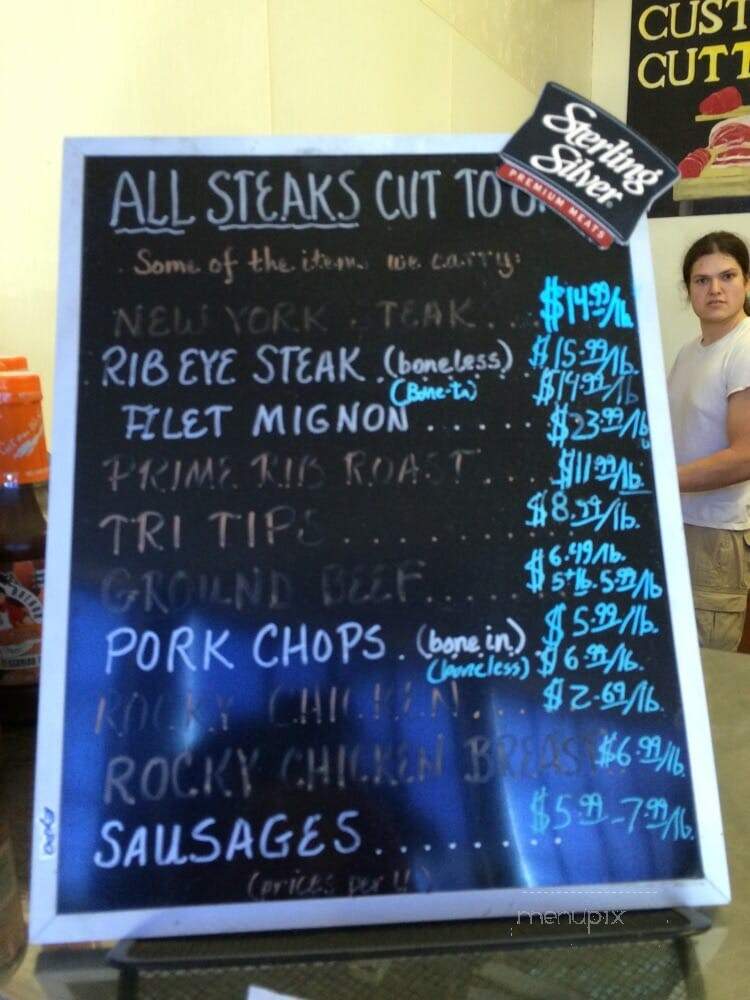 CUST
CUTT
Sterling
Silver
PREMIUM MEATS
ALL STEAKS CUT TO
Some of the items we carry:
NEW YORK STEAK... $14.99/lb
RIB EYE STEAK.(boneless) $15.99/lb.
(Bone-in) $14.99/lb
FILET MIGNON...... $23.99/lb
PRIME RIB ROAST... $11.99/lb.
TRI TIPS......... $8.99/lb.
6.49/lb.
GROUND BEEF..... $5+lb. 5.99/lb
PORK CHOPS.(bone in). $5.99/lb.
(boneless) $6.99/lb.
ROCKY CHICKEN... $2.69/lb.
ROCKY CHICKEN BREAST $6.99/lb.
SAUSAGES........ $5.99-7.99/lb.
(prices per
menupix